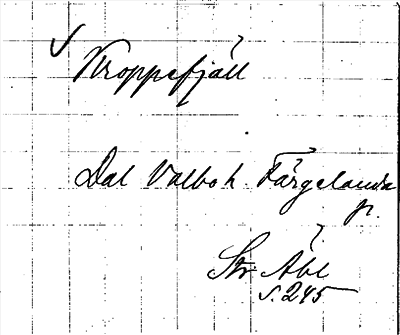 ✓ Kroppefjäll
Dal Valbo h. Färgelanda
p.
Str. Åbl
s. 245